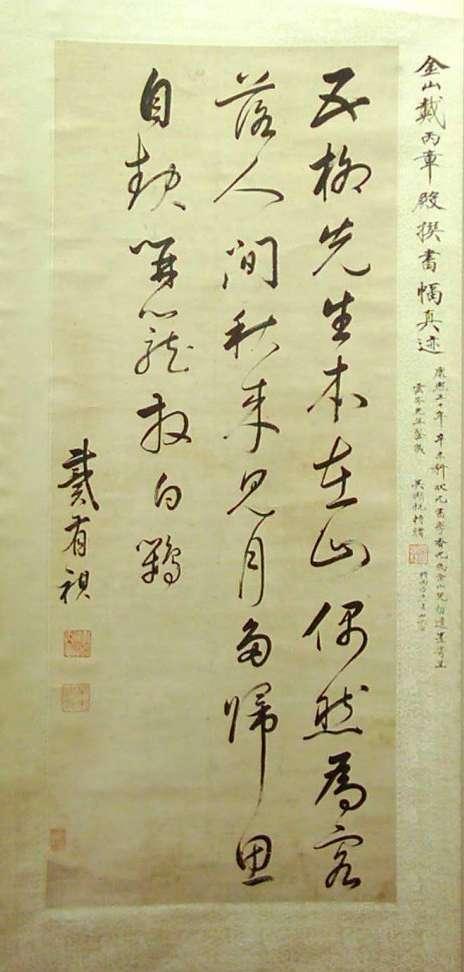 金山戴丙章殿撰書幅真迹
康熙三十年辛未科狀元
五柳先生本在山偶然為客
落人間秋來見月多歸思
自起開籠放白鷴
戴有祺